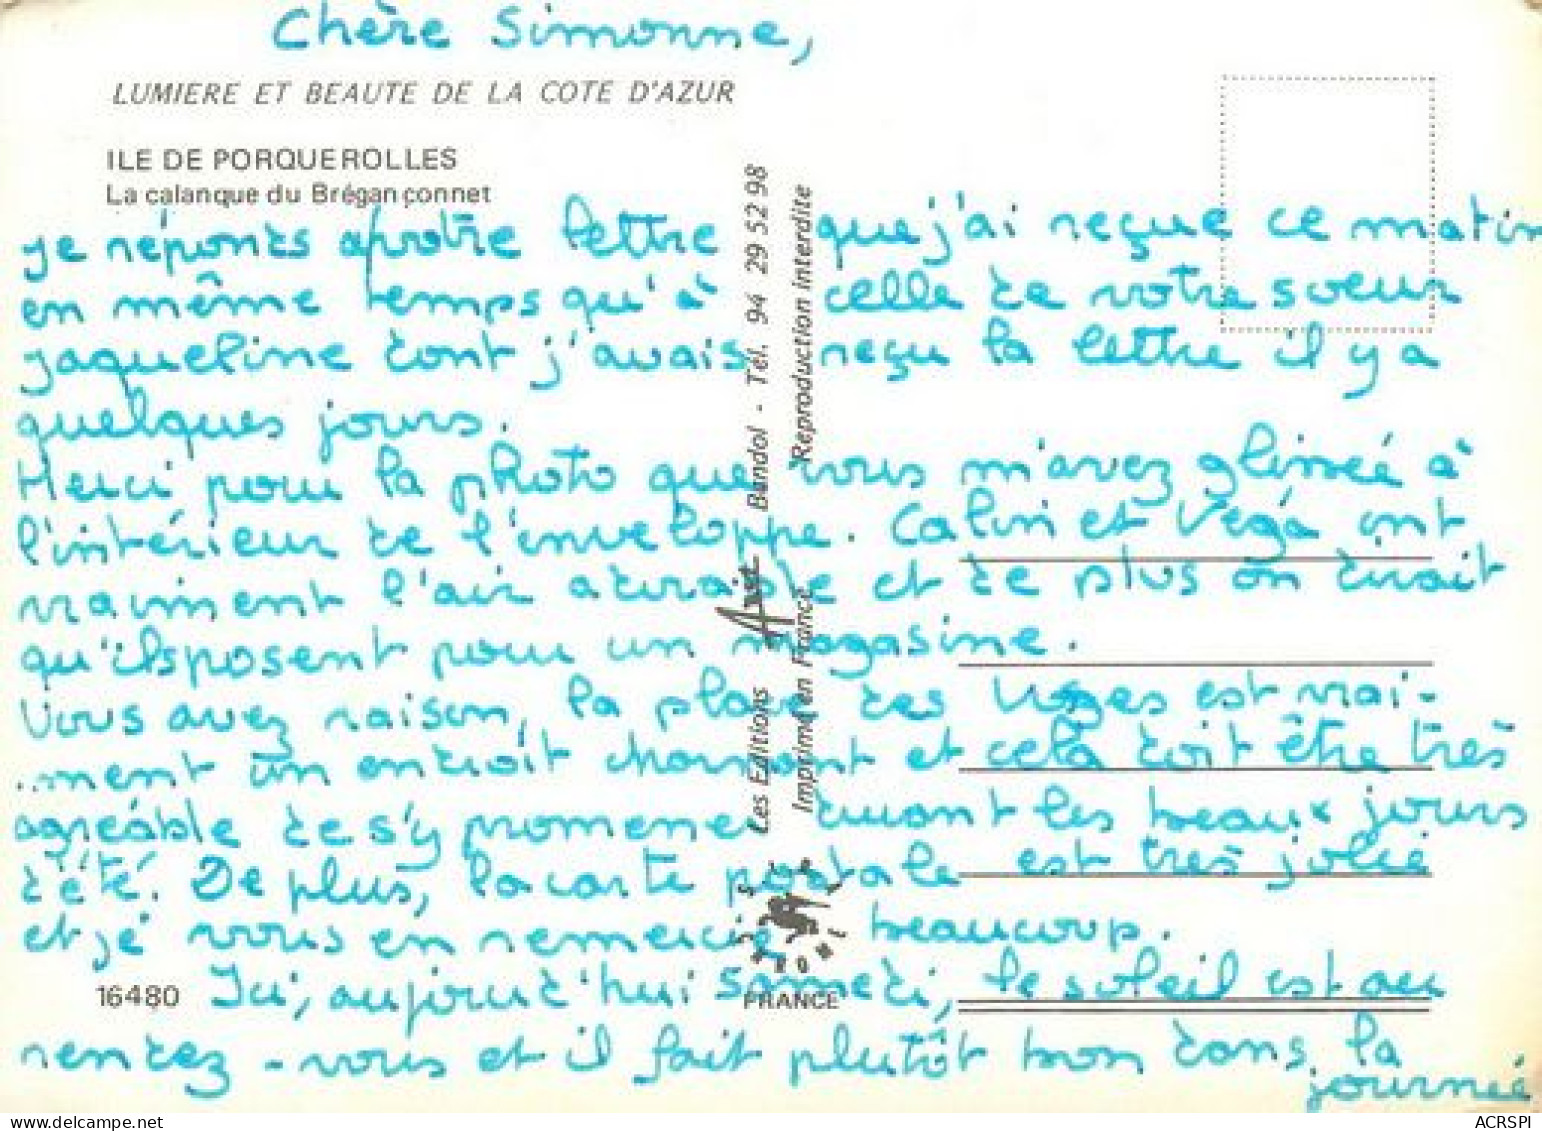 Chère Simonne,
LUMIERE ET BEAUTE DE LA COTE D'AZUR
ILE DE PORQUEROLLES
La calanque du Brégançonnet
je réponds à votre lettre que j'ai reçue ce matin
en même temps qu'à celle de votre soeur
jaqueline dont j'avais reçu la lettre il y a
quelques jours.
Merci pour la photo que vous m'avez glissée à
l'intérieur de l'enveloppe. Calin et Véga ont
vraiment l'air adorable et de plus on dirait
qu'ils posent pour un magasine.
Vous avez raison, la place des Vosges est vrai-
..ment un endroit charmant et cela doit être très
agréable de s'y promener durant les beaux jours
d'été. De plus, la carte postale est très jolie
et je vous en remercie beaucoup.
16480 Ici, aujourd'hui samedi, le soleil est au
rendez-vous et il fait plutôt bon dans la
journée
Les Editions Bandol - Tél. 94 29 52 98
Imprimé en France Reproduction interdite
FRANCE
ACRSPI